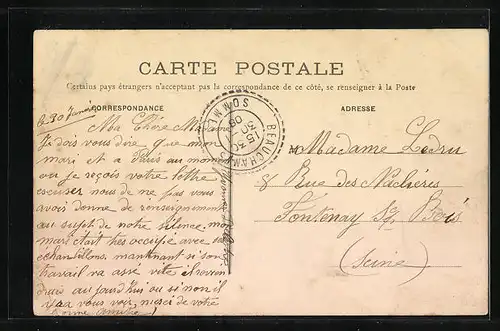 CARTE POSTALE
Certains pays étrangers n'acceptant pas la correspondance de ce côté, se renseigner à la Poste
CORRESPONDANCE
ADRESSE
Le 30 Janvier
Ma Chère
Je dois vous dire que mon
mari et a Paris au moment
ou je reçois votre lettre
escuser nous de ne pas vous
avoir donne de renseignement
au sujet de notre silence. mon
mari etait tres occupe avec
echantillons. maintenant si son
travail va asse vite il
aujourd'hui ou si non il
vous voir, merci de votre
bonne amitié!
BEAUCHAMP
SOMME
15 30
30
05
M Madame Ledru
8 Rue des
Fontenay S/ Bois
(Seine)